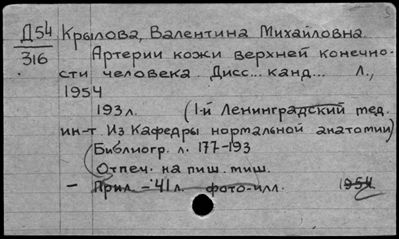 Д54 Крылова, Валентина Михайловна.
316 Артерии кожи верхней конечно-
сти человека. Дисс... канд... Л.,
1954
193л. (1-й Ленинградский мед.
ин-т. Из Кафедры нормальной анатомии)
Библиогр. л. 177-193
Отпеч. на пиш. маш.
- Прил. - 41л. фото-илл. 1954